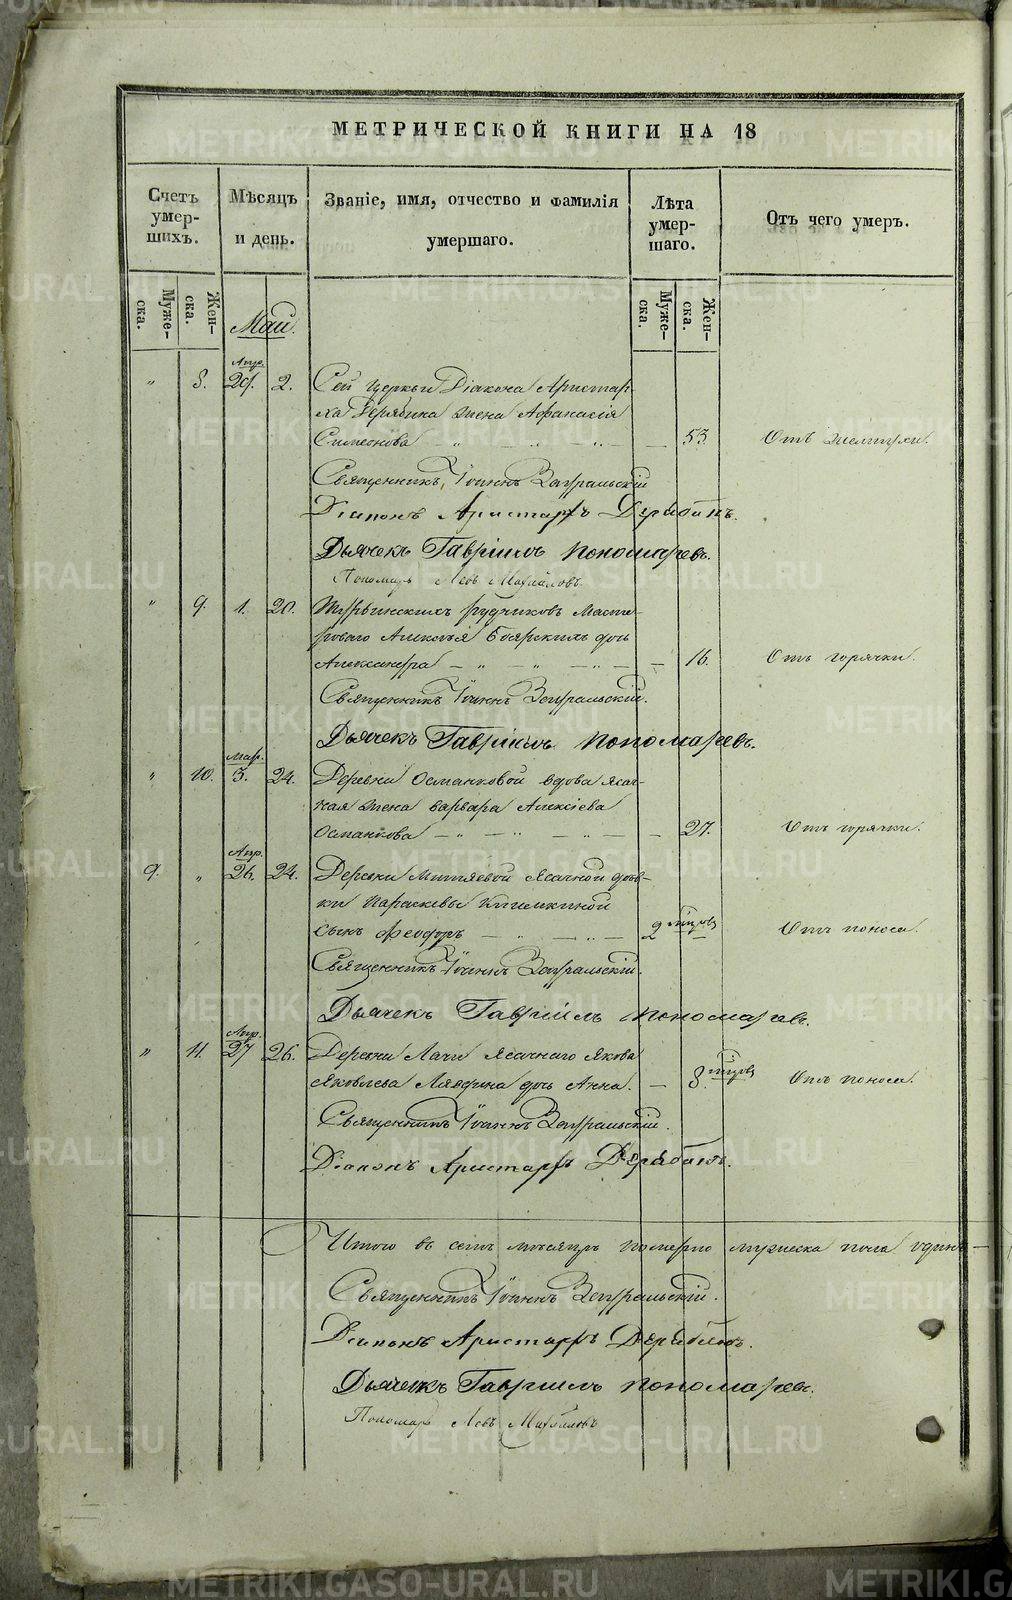 МЕТРИЧЕСКОЙ КНИГИ НА 18
Счетъ умер-шихъ.
Мѣсяцъ и день.
Званіе, имя, отчество и фамилія умершаго.
Лѣта умер-шаго.
Отъ чего умеръ.
Муже-ска.
Жен-ска.
Муже-ска.
Жен-ска.
Май.
Апр.
" 8. 29. 2. Сей церкви Діакона Аристар-
ха Дерябина жена Афанасія
Симеонова 53. Отъ желтухи.
Священникъ Іоаннъ Зауральскій
Діаконъ Аристархъ Дерябинъ.
Дьячекъ Гавріилъ Пономаревъ.
Пономарь Левъ Михайловъ.
" 9. 1. 20. Турьинскихъ рудниковъ Масте-
роваго Алексѣя Боярскихъ дочь
Александра 16. Отъ горячки.
Священникъ Іоаннъ Зауральскій.
Дьячекъ Гавріилъ Пономаревъ.
Мар.
" 10. 3. 24. Деревни Османковой вдова ясач-
ная жена Варвара Алексіева
Османкова 27. Отъ горячки.
Апр.
9. " 26. 24. Деревни Митяевой ясачной дѣв-
ки Параскевы
сынъ Феодоръ 2 Отъ поноса.
Священникъ Іоаннъ Зауральскій.
Дьячекъ Гавріилъ Пономаревъ.
Апр.
" 11. 27 26. Деревни Лачи ясачнаго Якова
Яковлева дочь Анна. 8. Отъ поноса.
Священникъ Іоаннъ Зауральскій.
Діаконъ Аристархъ Дерябинъ.
Итого въ семъ мѣсяцѣ померло мужеска пола одинъ
Священникъ Іоаннъ Зауральскій.
Діаконъ Аристархъ Дерябинъ.
Дьячекъ Гавріилъ Пономаревъ.
Пономарь Левъ Михайловъ
METRIKI.GASO-URAL.RU